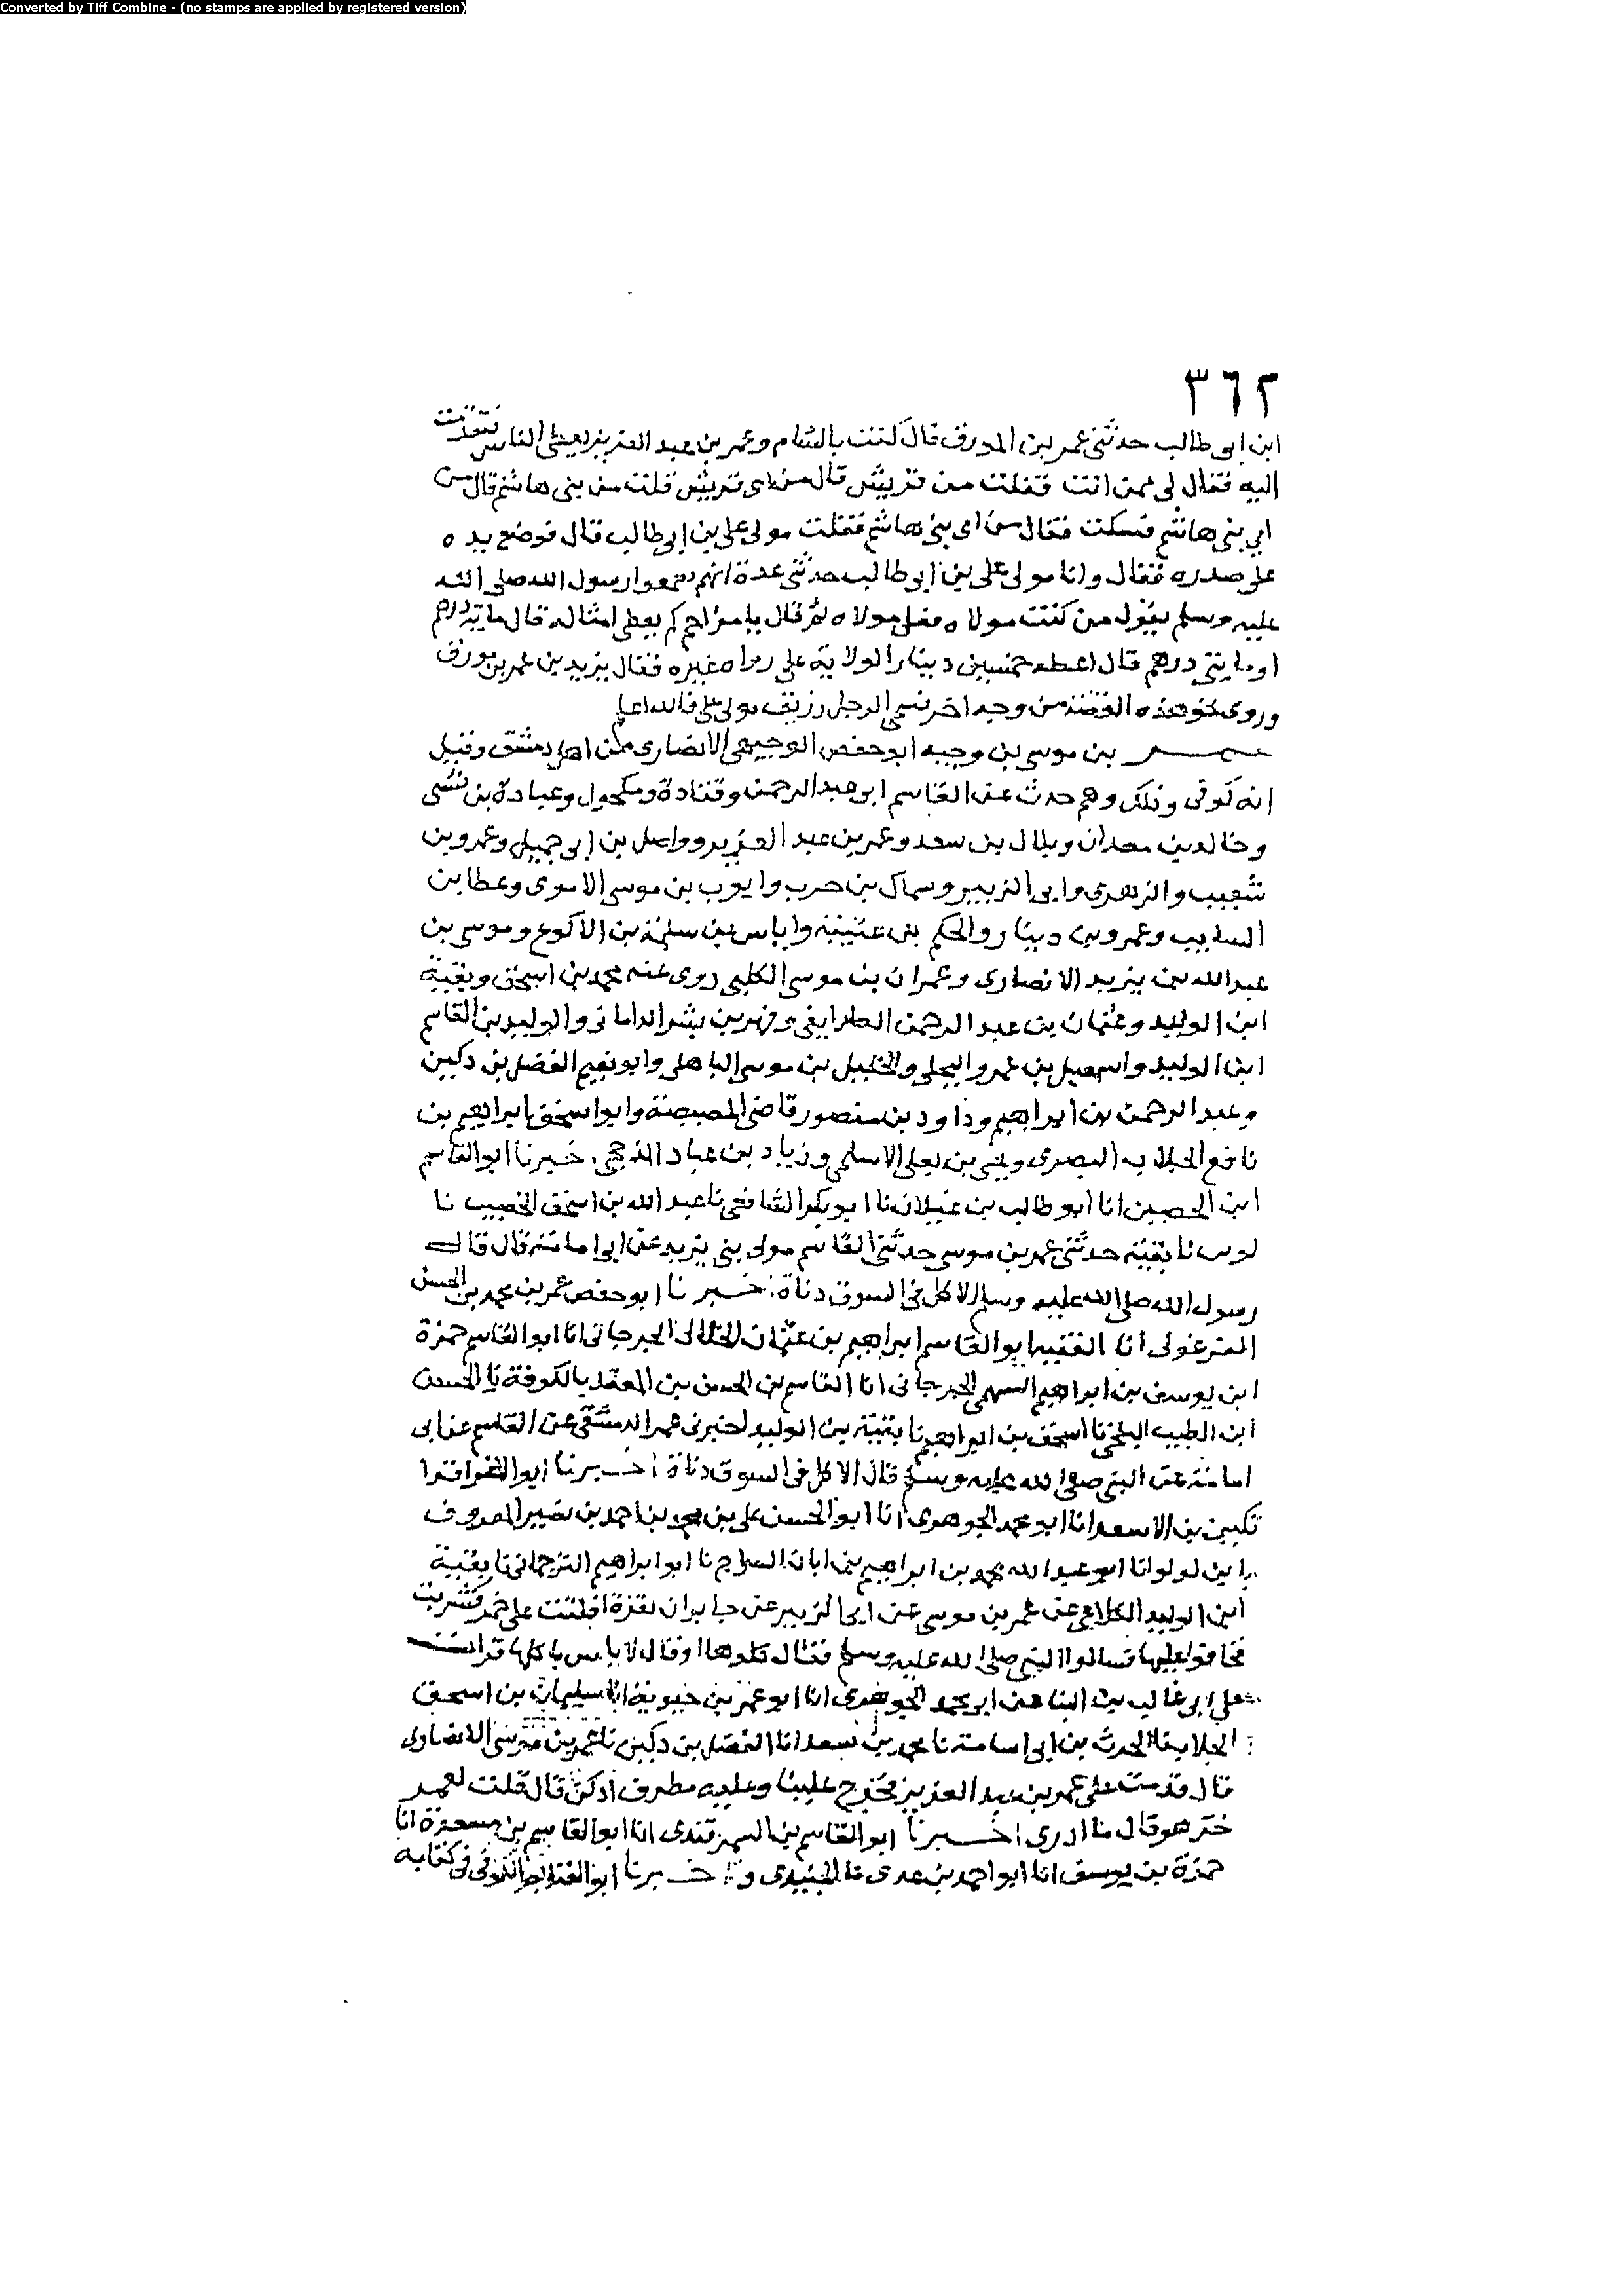 Converted by Tiff Combine - (no stamps are applied by registered version)
٣٦٢
ابن ابى طالب حدثنى عمر بن المورق قال كنت بالشام وعمر بن عبد العزيز يعطى الناس فتقدمت
اليه فقال لى ممن انت فقلت من قريش قال من اى قريش قلت من بنى هاشم قال من
اي بنى هاشم فسكت فقال من اى بنى هاشم فقلت مولى على بن ابى طالب قال فوضع يده
على صدره فقال وانا مولى على بن ابى طالب حدثنى عدة انهم سمعوا رسول الله صلى الله
عليه وسلم يقول من كنت مولاه فعلى مولاه ثم قال يا مزاحم كم يعطى امثاله قال مايه درهم
او مايتى درهم قال اعطه خمسين دينارا لولايته على غيره فقال يزيد بن عمر بن مورق
وروى نحو هذه القصة من وجه اخر فسمى الرجل رزيق مولى على فالله اعلم
عمر بن موسى بن وجيه ابو حفص الوجيهى الانصارى من اهل دمشق وقيل
انه كوفى وذلك وهم حدث عن القاسم ابو عبد الرحمن وقتادة ومكحول وعبادة بن نسى
وخالد بن معدان وبلال بن سعد وعمر بن عبد العزيز وواصل بن ابى جميل وعمرو بن
شعيب والزهرى وابى الزبير وسماك بن حرب وايوب بن موسى الاموى وعطا بن
السايب وعمرو بن دينار والحكم بن عتيبة واياس بن سلمة بن الاكوع وموسى بن
عبد الله بن يزيد الانصارى وعمران بن موسى الكلبى روى عنه محمد بن اسحق وبقية
ابن الوليد وعثمان بن عبد الرحمن الطرايفى وفهر بن بشر الدامانى والوليد بن القاسم
ابن الوليد واسمعيل بن عمرو البجلى والخليل بن موسى الباهلى وابو نعيم الفضل بن دكين
وعبد الرحمن بن ابراهيم وداود بن منصور قاضى المصيصة وابو اسحق ابراهيم بن
نافع الجلاب البصرى ويحيى بن يعلى الاسلمى وزياد بن عباد المذحجى خبرنا ابو القاسم
ابن الحصين انا ابو طالب بن غيلان نا ابو بكر الشافعى نا عبد الله بن اسحق الخصيب نا
لوين نا بقية حدثنى عمر بن موسى حدثنى القاسم مولى بنى يزيد عن ابى امامة قال قال
رسول الله صلى الله عليه وسلم الاكل فى السوق دناة خبرنا ابو حفص عمر بن محمد بن الحسن
الفرغولى انا الفقيه ابو القاسم ابراهيم بن عثمان الخلالى الجرجانى انا ابو القاسم حمزة
ابن يوسف بن ابراهيم السهمى الجرجانى انا القاسم بن الحسن بن المعقد بالكوفة نا الحسن
ابن الطيب البلخى نا اسحق بن ابراهيم نا بقية بن الوليد اخبرنى عمر الدمشقى عن القاسم عن ابى
امامة عن النبى صلى الله عليه وسلم قال الاكل فى السوق دناة اخبرنا ابو الاغر قراتكين
بن الاسعد انا ابو محمد الجوهرى انا ابو الحسن على بن محمد بن احمد بن نصير المعروف
بابن لولو انا ابو عبد الله محمد بن ابراهيم بن ابان السراج نا ابو ابراهيم الترجمانى نا بقية
ابن الوليد الكلاعى عن عمر بن موسى عن ابى الزبير عن جابر ان بقرة افلتت على خمر فشربت
فخافوا عليها فسالوا النبى صلى الله عليه وسلم فقال كلوها او قال لا باس باكلها قرات
على ابى غالب بن البنا عن ابى محمد الجوهرى انا ابو عمر بن حيوية انا سليمان بن اسحق
الجلاب نا الحرث بن ابى اسامة نا محمد بن سعد انا الفضل بن دكين نا عمر بن موسى الانصارى
قال قدمت على عمر بن عبد العزيز فخرج علينا وعليه مطرف ادكن قال قلت لعمر
خز هو قال ما ادرى اخبرنا ابو القاسم بن السمرقندى انا ابو القاسم بن مسعدة انا
حمزة بن يوسف انا ابو احمد بن عدى نا الجنيدى وخبرنا ابو الغنايم الكوفى فى كتابه